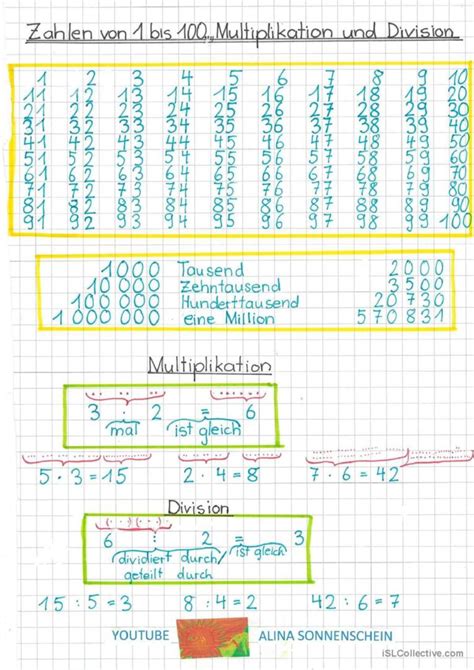 Zahlen von 1 bis 100, Multiplikation und Division
1 2 3 4 5 6 7 8 9 10
11 12 13 14 15 16 17 18 19 20
21 22 23 24 25 26 27 28 29 30
31 32 33 34 35 36 37 38 39 40
41 42 43 44 45 46 47 48 49 50
51 52 53 54 55 56 57 58 59 60
61 62 63 64 65 66 67 68 69 70
71 72 73 74 75 76 77 78 79 80
81 82 83 84 85 86 87 88 89 90
91 92 93 94 95 96 97 98 99 100
1000 Tausend 2000
10 000 Zehntausend 3500
100 000 Hunderttausend 20 730
1 000 000 eine Million 570 831
Multiplikation
3 · 2 = 6
mal ist gleich
5 · 3 = 15 2 · 4 = 8 7 · 6 = 42
Division
6 : 2 = 3
dividiert durch/ ist gleich
geteilt durch
15 : 5 = 3 8 : 4 = 2 42 : 6 = 7
YOUTUBE ALINA SONNENSCHEIN
iSLCollective.com